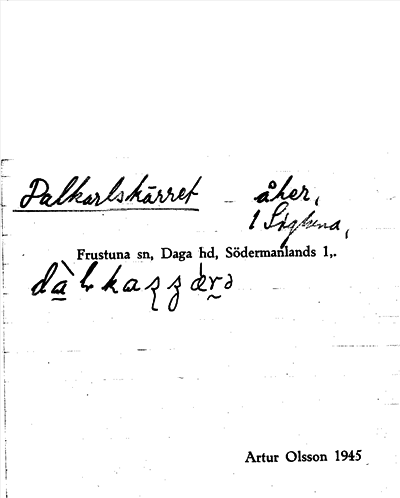 Dalkarlskärret åker,
1 Sigtuna,
Frustuna sn, Daga hd, Södermanlands l,.
Artur Olsson 1945